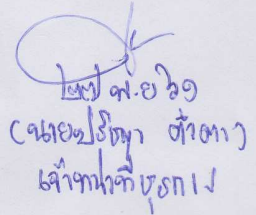 ๒๗ พ.ย ๖๑
(นายปรีชา คำตา)
เจ้าหน้าที่ธุรการ